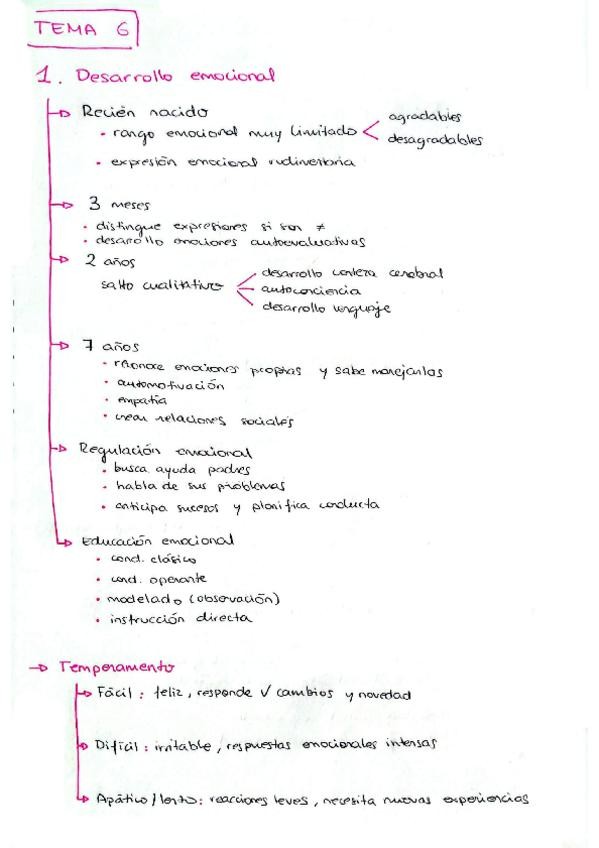 TEMA 6
1. Desarrollo emocional
→ Recién nacido
• rango emocional muy limitado < agradables
desagradables
• expresión emocional rudimentaria
→ 3 meses
• distingue expresiones si son ≠
• desarrollo emociones autoevaluativas
→ 2 años
salto cualitativo
desarrollo corteza cerebral
autoconciencia
desarrollo lenguaje
→ 7 años
• reconoce emociones propias y sabe manejarlas
• automotivación
• empatía
• crear relaciones sociales
→ Regulación emocional
• busca ayuda padres
• habla de sus problemas
• anticipa sucesos y planifica conducta
→ Educación emocional
• cond. clásico
• cond. operante
• modelado (observación)
• instrucción directa
→ Temperamento
→ Fácil: feliz, responde √ cambios y novedad
→ Difícil: irritable, respuestas emocionales intensas
→ Apático/lento: reacciones leves, necesita nuevas experiencias